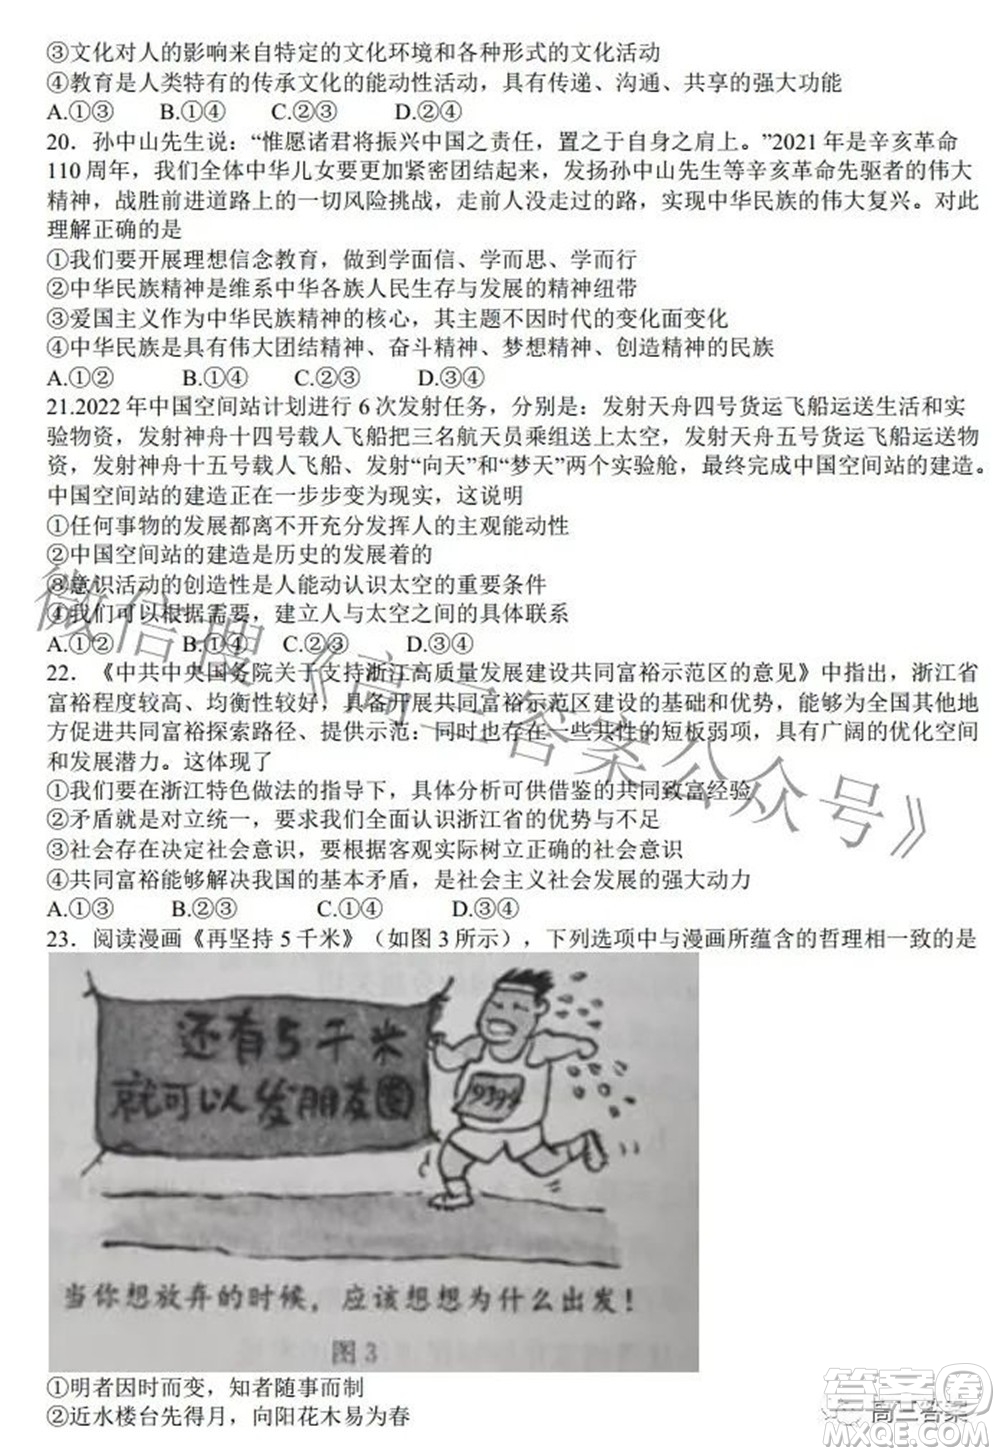 ③文化对人的影响来自特定的文化环境和各种形式的文化活动
④教育是人类特有的传承文化的能动性活动，具有传递、沟通、共享的强大功能
A.①③ B.①④ C.②③ D.②④
20．孙中山先生说：“惟愿诸君将振兴中国之责任，置之于自身之肩上。”2021年是辛亥革命
110周年，我们全体中华儿女要更加紧密团结起来，发扬孙中山先生等辛亥革命先驱者的伟大
精神，战胜前进道路上的一切风险挑战，走前人没走过的路，实现中华民族的伟大复兴。对此
理解正确的是
①我们要开展理想信念教育，做到学而信、学而思、学而行
②中华民族精神是维系中华各族人民生存与发展的精神纽带
③爱国主义作为中华民族精神的核心，其主题不因时代的变化面变化
④中华民族是具有伟大团结精神、奋斗精神、梦想精神、创造精神的民族
A.①② B.①④ C.②③ D.③④
21.2022年中国空间站计划进行6次发射任务，分别是：发射天舟四号货运飞船运送生活和实
验物资，发射神舟十四号载人飞船把三名航天员乘组送上太空，发射天舟五号货运飞船运送物
资，发射神舟十五号载人飞船、发射“向天”和“梦天”两个实验舱，最终完成中国空间站的建造。
中国空间站的建造正在一步步变为现实，这说明
①任何事物的发展都离不开充分发挥人的主观能动性
②中国空间站的建造是历史的发展着的
③意识活动的创造性是人能动认识太空的重要条件
④我们可以根据需要，建立人与太空之间的具体联系
A.①② B.①④ C.②③ D.③④
22．《中共中央国务院关于支持浙江高质量发展建设共同富裕示范区的意见》中指出，浙江省
富裕程度较高、均衡性较好，具备开展共同富裕示范区建设的基础和优势，能够为全国其他地
方促进共同富裕探索路径、提供示范：同时也存在一些共性的短板弱项，具有广阔的优化空间
和发展潜力。这体现了
①我们要在浙江特色做法的指导下，具体分析可供借鉴的共同致富经验
②矛盾就是对立统一，要求我们全面认识浙江省的优势与不足
③社会存在决定社会意识，要根据客观实际树立正确的社会意识
④共同富裕能够解决我国的基本矛盾，是社会主义社会发展的强大动力
A.①③ B.②③ C.①④ D.②④
23．阅读漫画《再坚持5千米》（如图3所示），下列选项中与漫画所蕴含的哲理相一致的是
还有5千米
就可以发朋友圈
9394
当你想放弃的时候，应该想想为什么出发！
图3
①明者因时而变，知者随事而制
②近水楼台先得月，向阳花木易为春
微信搜《高三答案公众号》
高三答案
答案圈
MXQE.COM